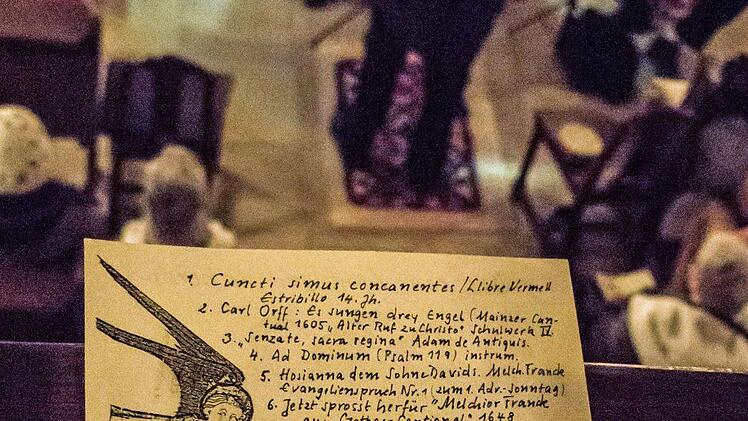 1. Cuncti simus concanentes / Llibre Vermell
Estribillo 14. Jh.
2. Carl Orff : Es sungen drey Engel (Mainzer Can-
tual 1605 „Alter Ruf zu Christo" Schulwerk IV.
3. „Senzate, sacra regina" Adam de Antiquis.
4. Ad Dominum (Psalm 119) instrum.
5. Hosianna dem Sohne Davids. Melch. Franck
Evangilienspruch Nr. 1 (zum 1. Adv.-Sonntag)
6. Jetzt sprosst herfür "Melchior Franck
aus Gothaer Cantional" 1648